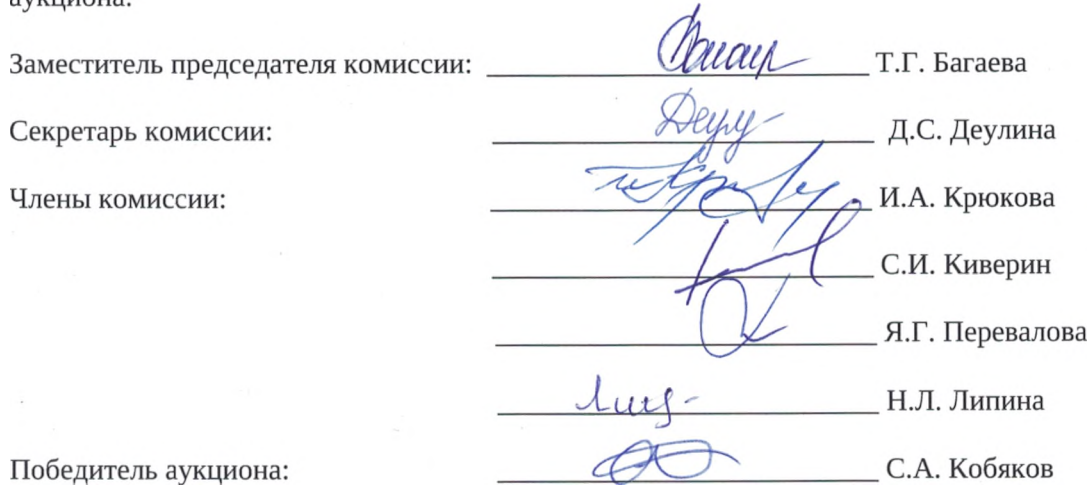 аукциона.
Заместитель председателя комиссии: Т.Г. Багаева
Секретарь комиссии: Д.С. Деулина
Члены комиссии: И.А. Крюкова
С.И. Киверин
Я.Г. Перевалова
Н.Л. Липина
Победитель аукциона: С.А. Кобяков